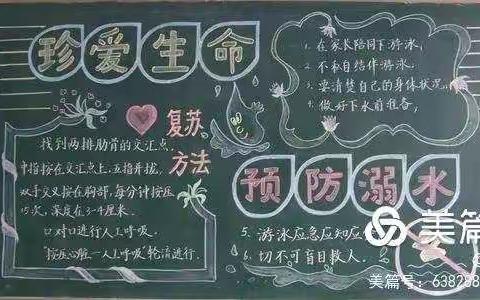 珍爱生命
复苏
方法
找到两排肋骨的交汇点.
中指按在交汇点上,五指并拢,
双手交叉按在胸部,每分钟按压
15次,深度在3-4厘米.
口对口进行人工呼吸.
"按压心脏—人工呼吸"轮流进行.
1.在家长陪同下游泳.
2.不私自结伴游泳.
3.要清楚自己的身体状况.
4.做好下水前准备.
预防溺水
5.游泳应急应知应
6.切不可盲目救人.
美篇
美篇号:638288